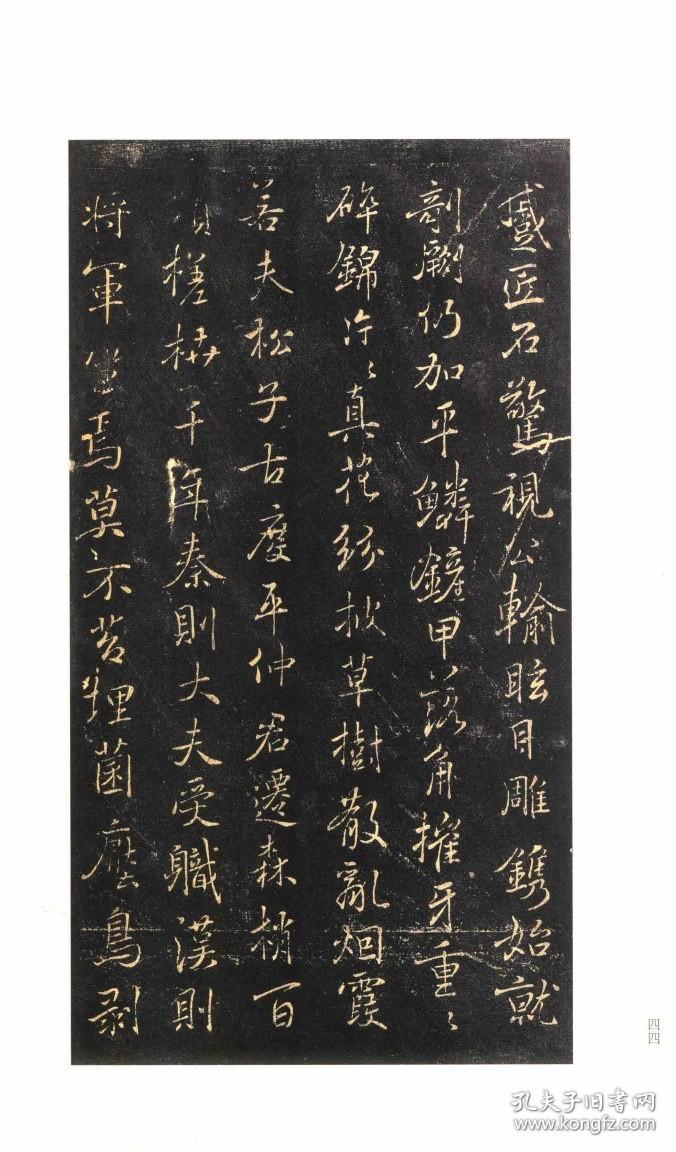 蹙匠石驚視公輸眩目雕鐫始就
剞劂仍加平鱗鏟甲落角摧牙重〻
碎錦片〻真花紛披草樹散亂烟霞
若夫松子古度平仲君遷森梢百
頃槎枿千年秦則大夫受職漢則
将軍坐焉莫不苔埋菌壓鳥剥
四四
孔夫子旧书网
www.kongfz.com